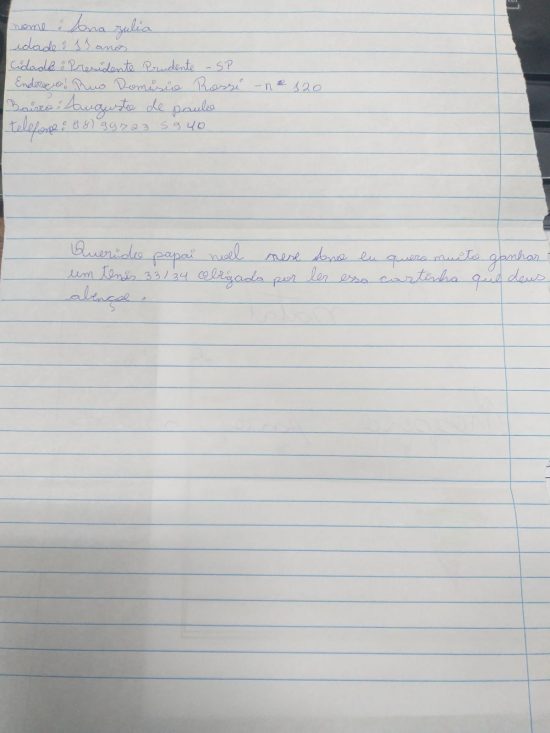 nome : Ana Julia
idade : 11 anos
Cidade : Presidente Prudente - SP
Endreço : Rua Domisio Rossi - nº 120
Bairo : Augusto de paula
telefone : (18) 99703 5940
Querido papai noel nese Ano eu quero muito ganhar
um tenis 33/34 obrigada por ler essa cartinha que deus
abençoe .